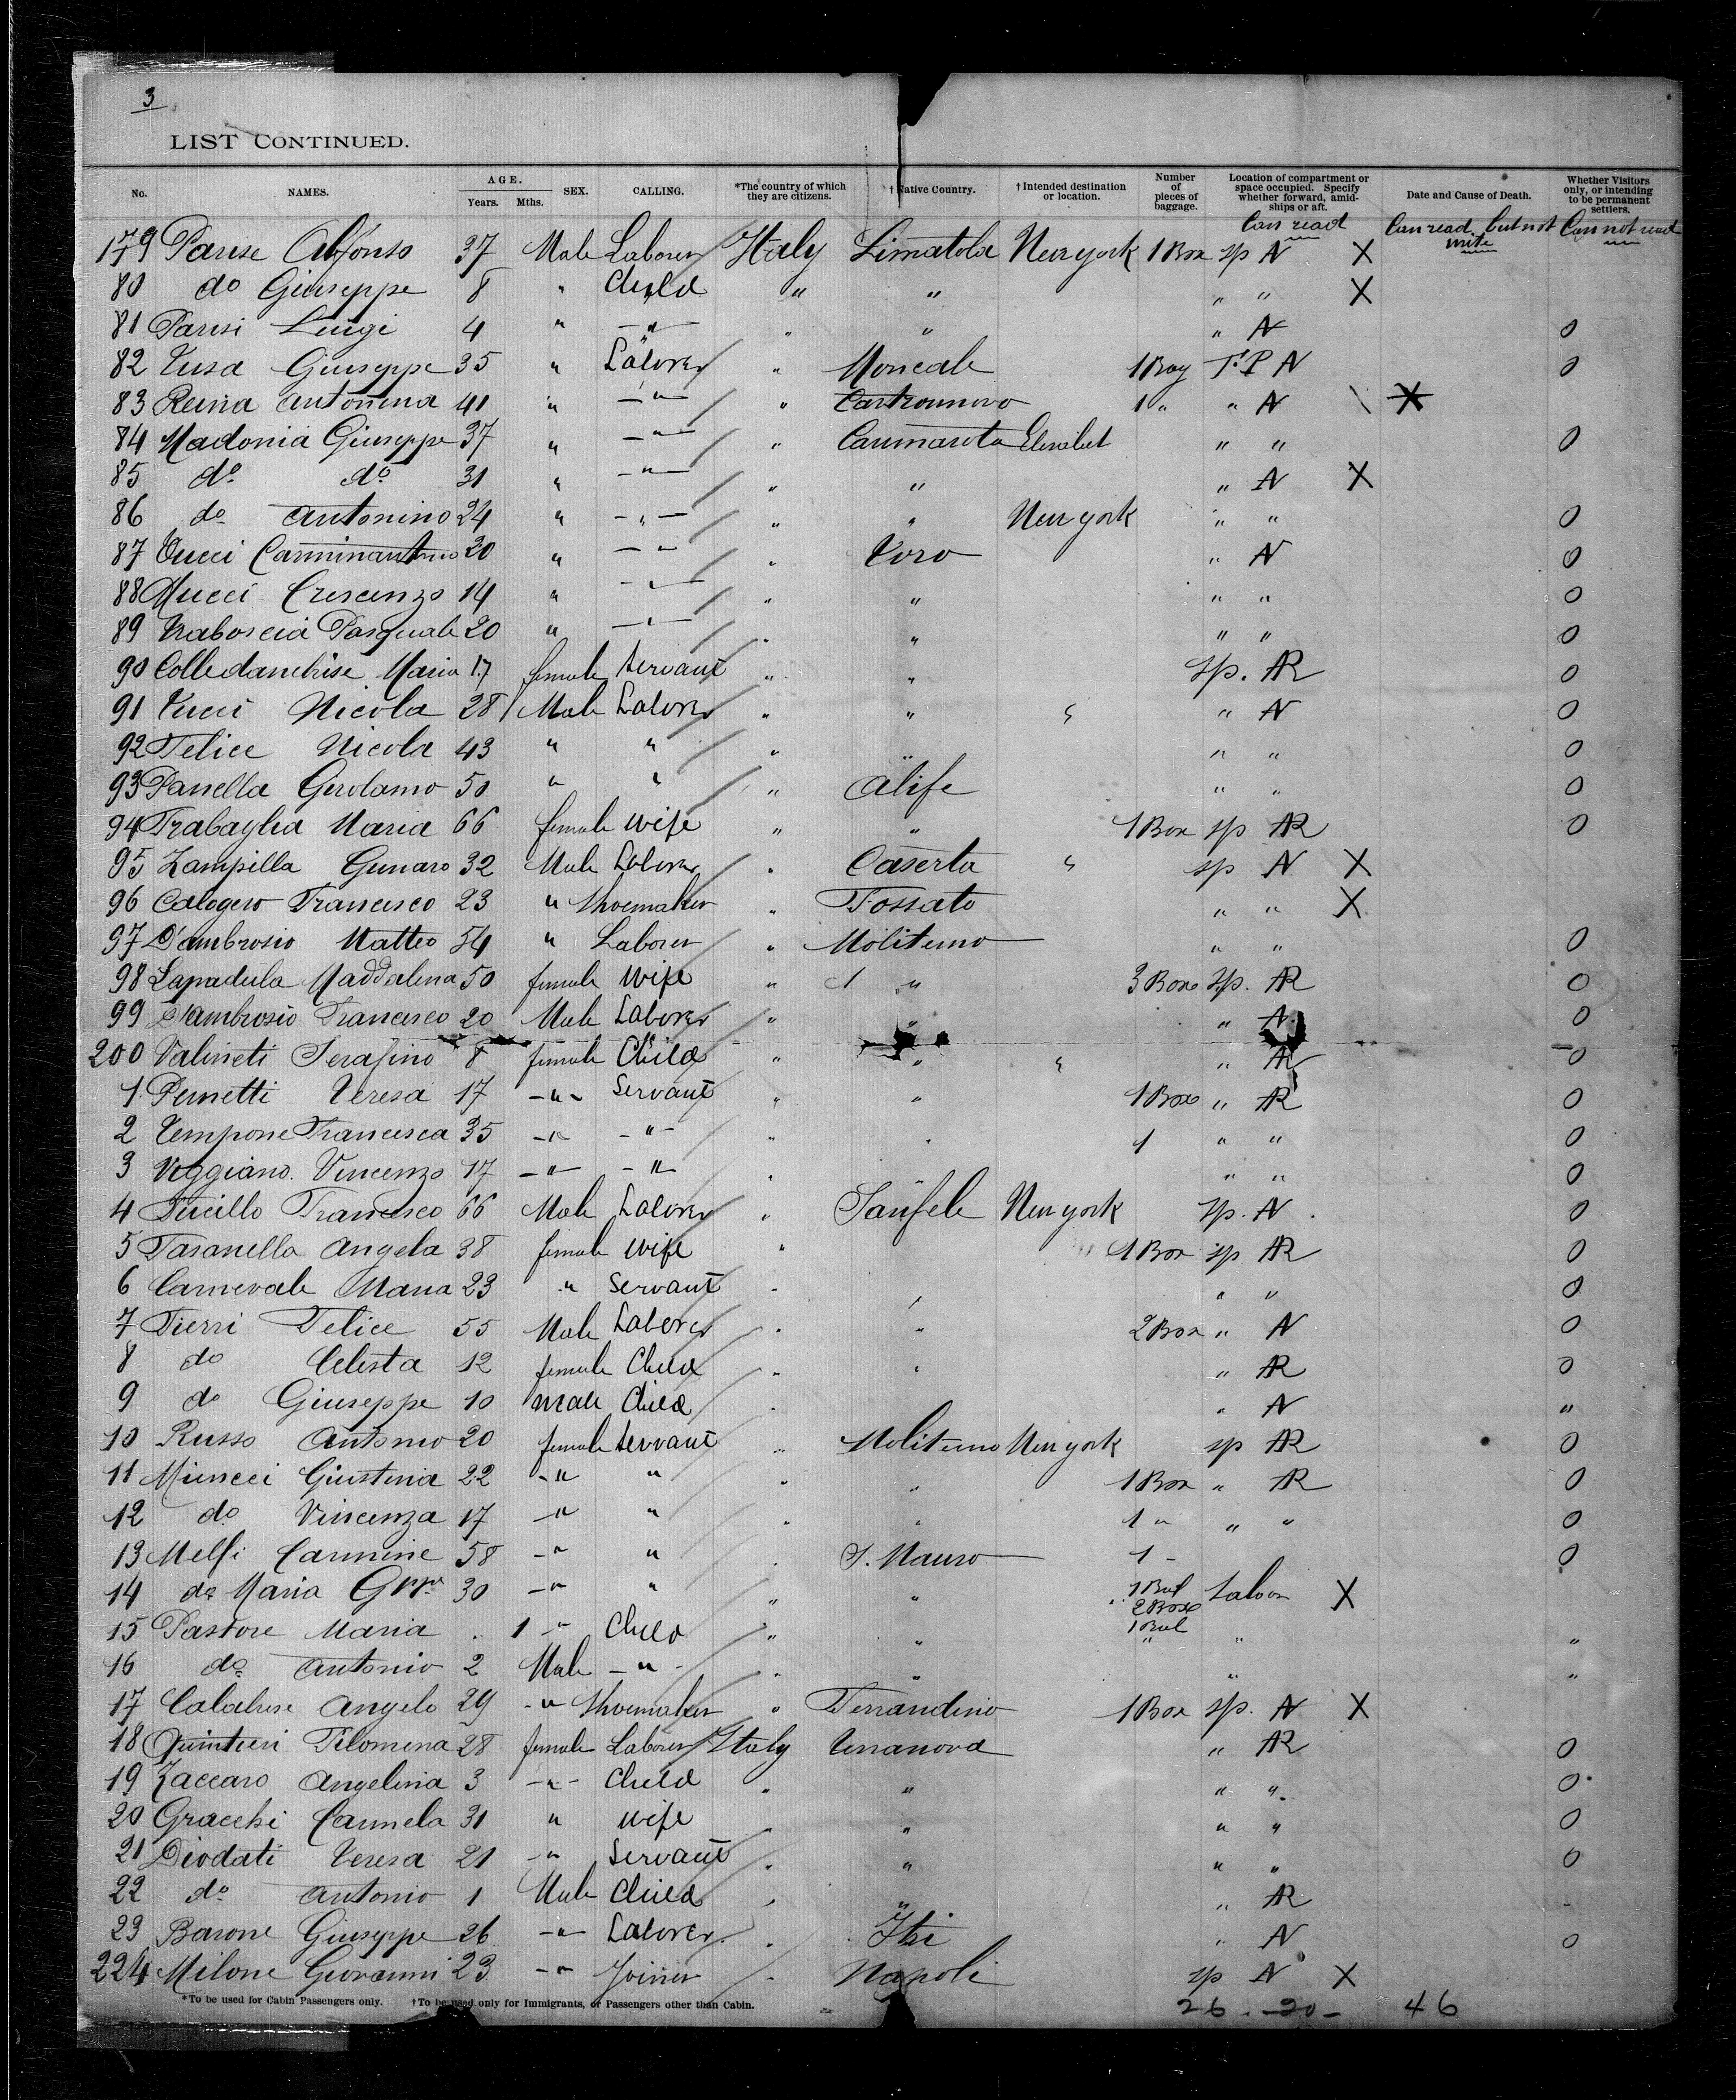 3
LIST CONTINUED.
No. NAMES. AGE. Years. Mths. SEX. CALLING. *The country of which they are citizens. †Native Country. †Intended destination or location. Number of pieces of baggage. Location of compartment or space occupied. Specify whether forward, amidships or aft. Date and Cause of Death. Whether Visitors only, or intending to be permanent settlers.
Can read Can read but not write Can not read
179 Parise Alfonso 37 Male Laborer Italy Limatola New york 1 Box sp N X
80 do Giuseppe 8 " Child " " " " X
81 Parisi Luigi 4 " " " " " N 0
82 Giuseppe 35 " Laborer " 1 Bag N 0
83 Reina Antonina 41 " " " 1 " " N X
84 Madonia Giuseppe 37 " " " Elisabet " " 0
85 do do 31 " " " " " N X
86 do Antonino 24 " " " " New york " " 0
87 20 " " " " N 0
88 Mucci Crescenzo 14 " " " " " " 0
89 Pasquale 20 " " " " " " 0
90 Colledanchise Maria 17 female Servant " " sp. AR 0
91 Nicola 28 Male Laborer " " " " N 0
92 Felice Nicola 43 " " " " " " 0
93 Panella Girolamo 50 " " " Alife " " 0
94 Trabaglia Maria 66 female Wife " " 1 Box sp AR 0
95 Zampilla Genaro 32 Male Laborer " Caserta " sp N X
96 Calogero Francesco 23 " Shoemaker " Fossato " " X
97 D'ambrosio Matteo 54 " Laborer " Moliterno " " 0
98 Lapadula Maddalena 50 female Wife " " 3 Box sp. AR 0
99 D'ambrosio Francesco 20 Male Laborer " " " N 0
200 Valineti Serafino 8 female Child " " " " AR 0
1 Teresa 17 " Servant " " 1 Box " AR 0
2 Tempone Francesca 35 " " " " 1 " " 0
3 Viggiano Vincenzo 17 " " " " " 0
4 Francesco 66 Male Laborer " New york sp. N 0
5 Tasanella Angela 38 female Wife " 1 Box sp AR 0
6 Carnevale Maria 23 " Servant " " " " 0
7 Fierri Felice 55 Male Laborer " " 2 Box " N 0
8 do Celesta 12 female Child " " " AR 0
9 do Giuseppe 10 male Child " " N "
10 Russo Antonio 20 female Servant " Moliterno New york sp AR 0
11 Giustina 22 " " " " 1 Box " AR 0
12 do Vincenza 17 " " " " 1 " " " 0
13 Melfi Carmine 58 " " " S. Mauro 1 - 0
14 de Maria 30 " " " " 1 Bul 2 Box Saloon X
15 Pastore Maria 1 " Child " " 1 Bul " " "
16 do Antonio 2 Male " " " " "
17 Calabrese Angelo 29 " Shoemaker " Ferrandino 1 Box sp. N X
18 Quintieri Filomena 28 female Laborer Italy Terranova " AR 0
19 Zaccaro Angelina 3 " Child " " " " 0
20 Gracchi Carmela 31 " Wife " " " " 0
21 Diodati Teresa 21 " Servant " " " " 0
22 do Antonio 1 Male Child " " " AR -
23 Barone Giuseppe 26 " Laborer " Itri " N 0
224 Milone Giovanni 23 " Joiner " Napoli sp N X
*To be used for Cabin Passengers only. †To be used only for Immigrants, or Passengers other than Cabin.
26 - 20 - 46